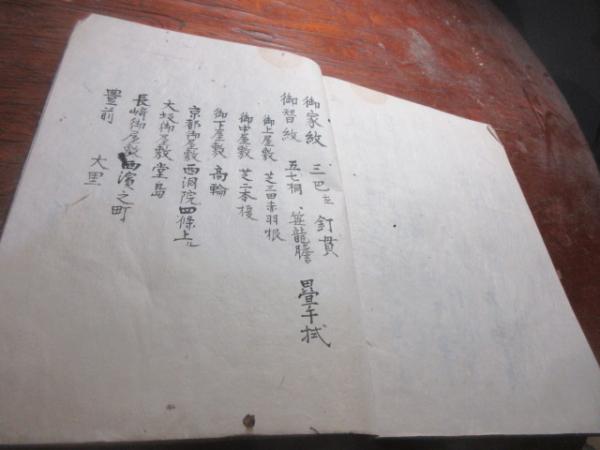 御家紋 三巴左 釘貫
御替紋 五七桐、笹龍膽 疊手拭
御上屋敷 芝三田赤羽根
御中屋敷 芝二本榎
御下屋敷 高輪
京都御屋敷 西洞院四條上ル
大坂御屋敷 堂島
長崎御屋敷 西濱之町
豊前 大里